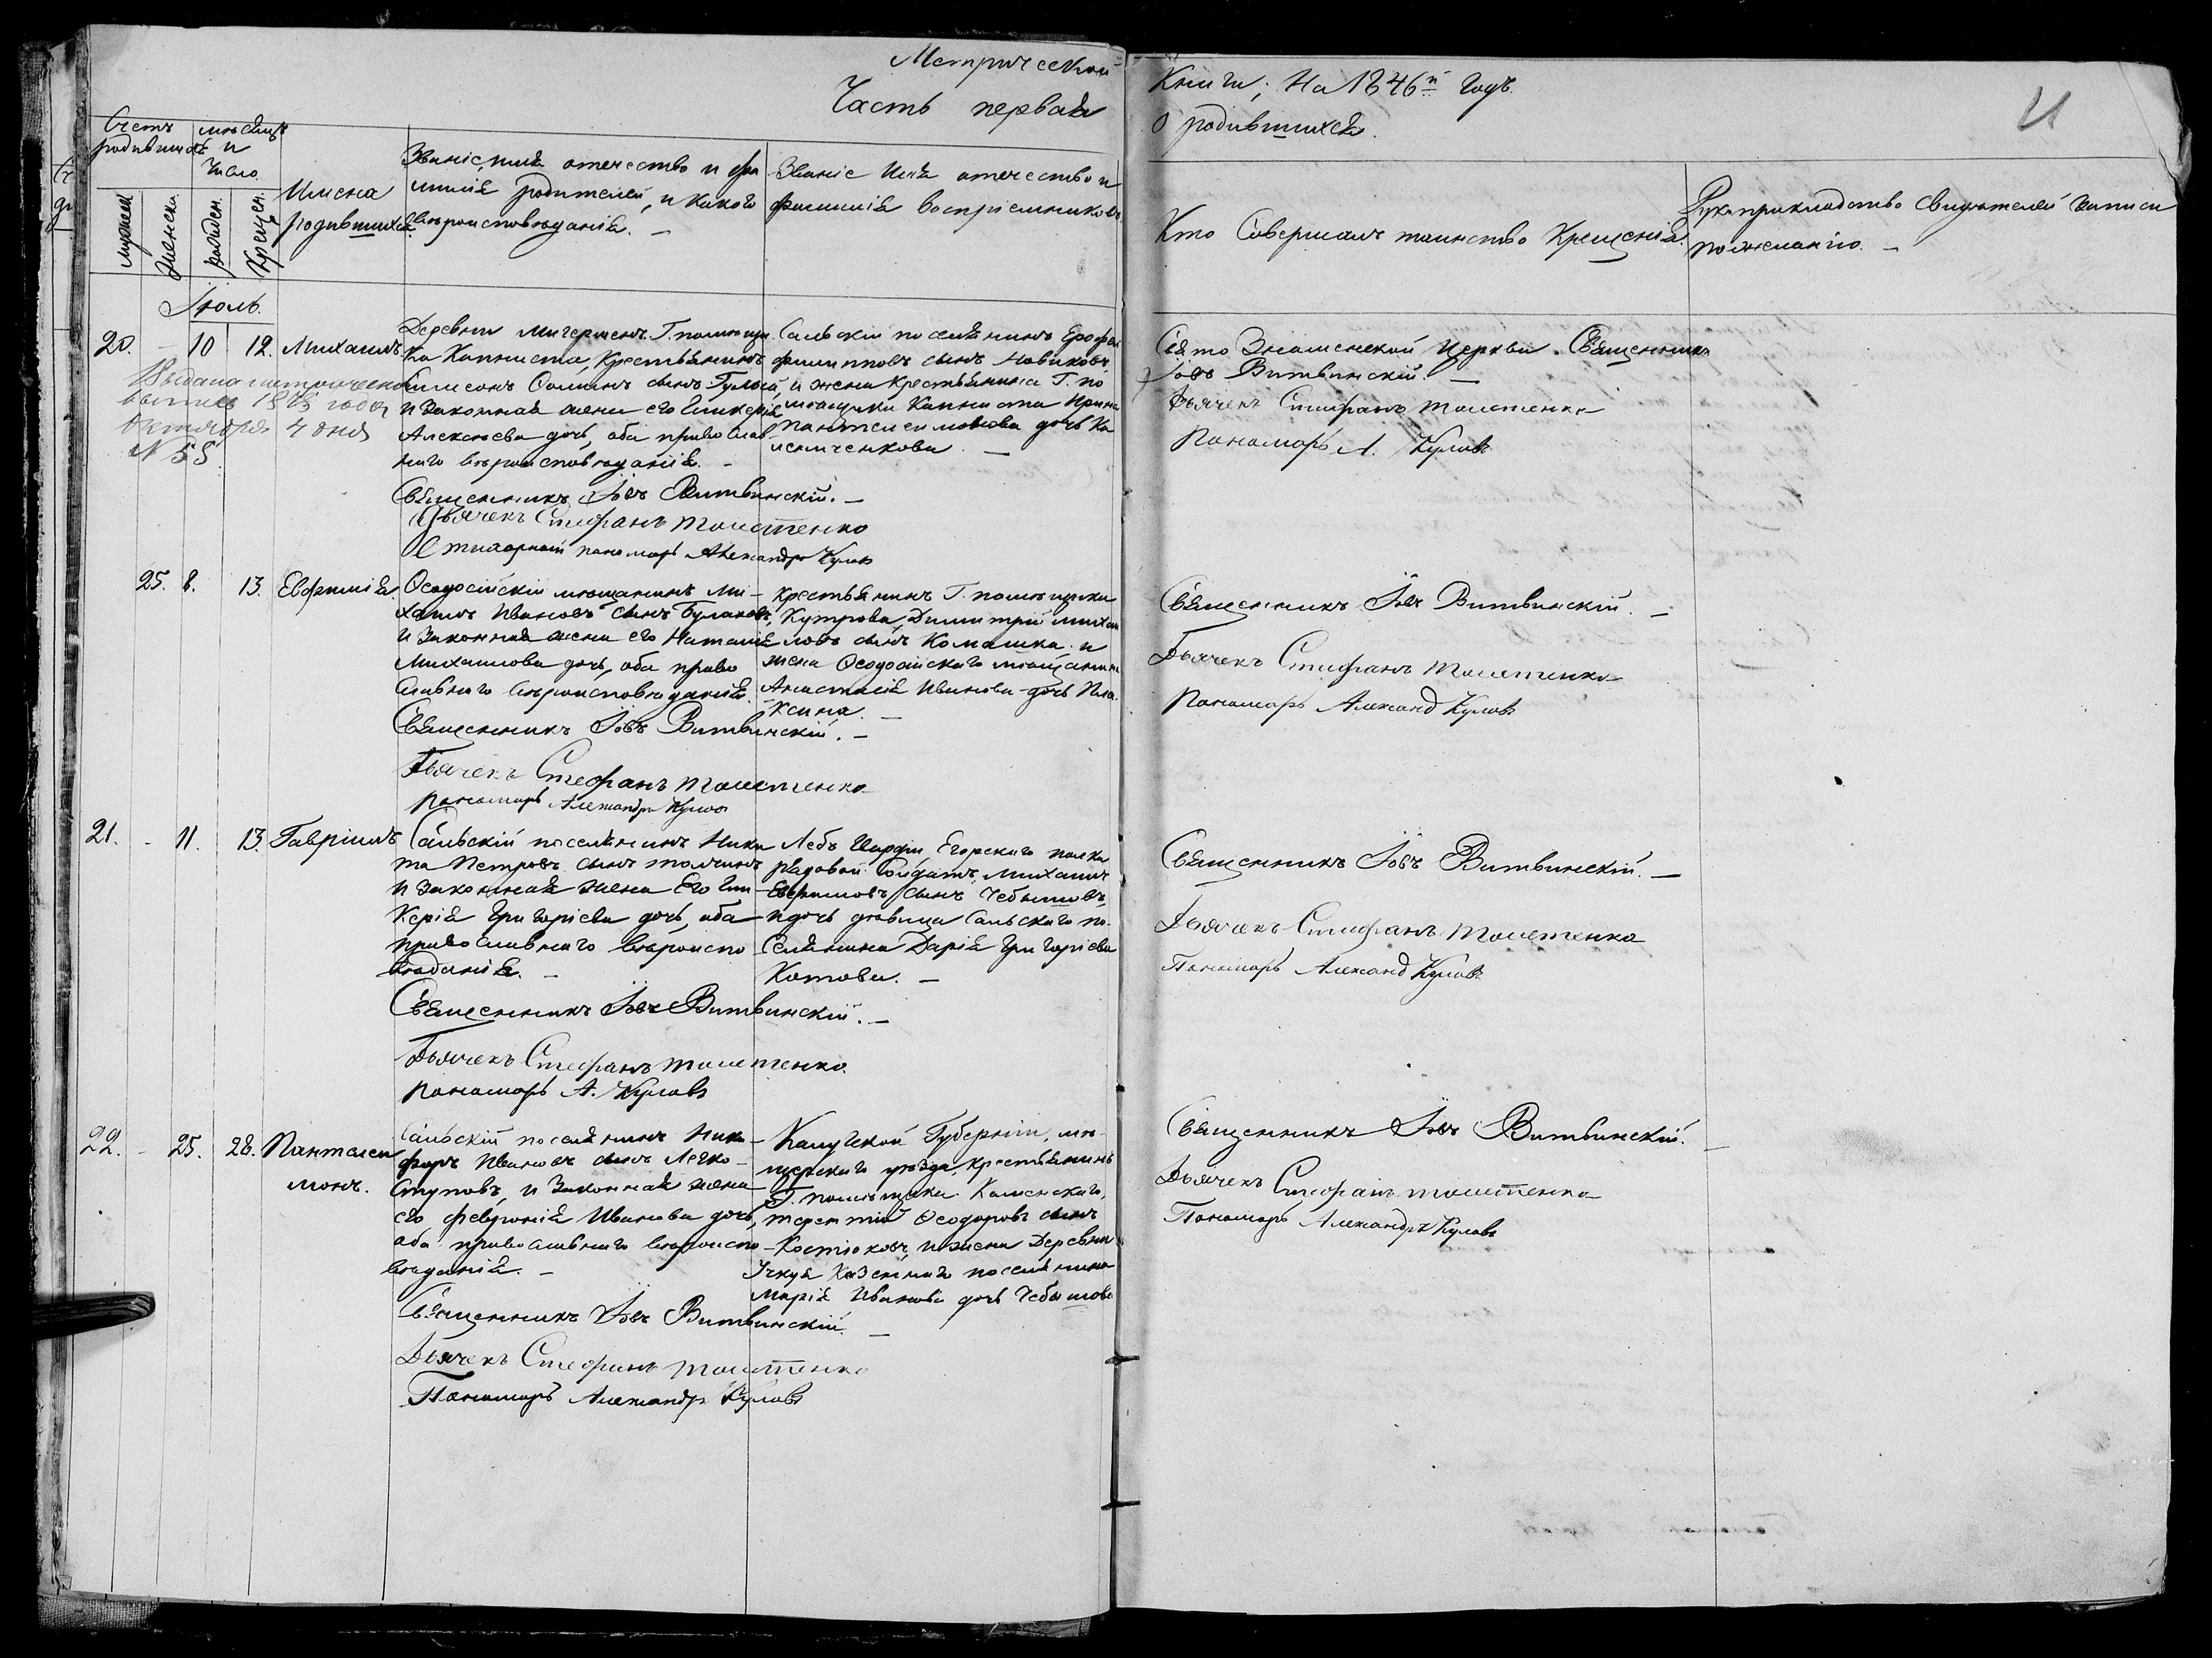 Метрической
Часть первая
Книги, на 1846й годъ.
О родившихся.
Счетъ родившихся
мѣсяцъ и число.
мужеска
женска
рожден.
Крещен.
Имена родившихся.
Званіе, имя отечество и фамилія родителей, и какого вѣроисповѣданія. —
Званіе Имя отечество и фамилія воспріемниковъ
Кто Совершалъ таинство Крещенія.
Рукоприкладство свидѣтелей записи по желанію. —
Іюль.
20. - 10 12. Михаилъ
Выдана метрическая
октября 4 дня
№ 55
Деревни Г. помѣщи
ка Капниста, Крестьянинъ
Симеонъ сынъ
и законная жена его Гликерія
Алексѣева дочь, оба православ-
наго вѣроисповѣданія. —
Священникъ Іовъ Витвинскій. —
Дьячекъ Стефанъ
Стихарный пономарь Александръ Куловъ
поселянинъ Ерофей
Филипповъ сынъ Новиковъ,
и жена крестьянина Г. по
мѣщика Капниста Ирина
Пантелеимонова дочь Ка
Свято Знаменской Церкви Священникъ
Іовъ Витвинскій. —
Дьячекъ Стефанъ
Пономарь А. Куловъ
25. 8. 13. Евфимія.
Ѳеодосійскій мѣщанинъ Ми-
хаилъ Ивановъ сынъ Булаковъ,
и законная жена его Наталія
Михаилова дочь, оба право
славнаго вѣроисповѣданія.
Священникъ Іовъ Витвинскій. —
Дьячекъ Стефанъ
пономарь Александръ Куловъ
Крестьянинъ Г. помѣщика
Кутрова, Димитрій Михаи
ловъ сынъ Комашка. и
жена Ѳеодосійскаго мѣщанина
Анастасія Иванова дочь Пла
ксина. —
Священникъ Іовъ Витвинскій. —
Дьячекъ Стефанъ
Пономарь Александ Куловъ
21. - 11. 13. Гавріилъ
поселянинъ Ники
та Петровъ сынъ
и законная жена Его Гли-
керія Григоріева дочь, оба
православнаго вѣроиспо
вѣданія. —
Священникъ Іовъ Витвинскій. —
Дьячекъ Стефанъ
пономарь А. Куловъ
Лебъ Гвардіи Егорскаго полка
рядовой Солдатъ Михаилъ
Евфимовъ сынъ Чебышовъ,
и дочь дѣвица по-
селянина Дарія Григоріева
Котова. —
Священникъ Іовъ Витвинскій. —
Дьячекъ Стефанъ
Пономарь Александ Куловъ
22. - 25. 28. Пантелеи
монъ.
поселянинъ Ники-
форъ Ивановъ сынъ Легко-
ступовъ, и законная жена
его Февронія Иванова дочь,
оба православнаго вѣроиспо
вѣданія. —
Священникъ Іовъ Витвинскій. —
Дьячекъ Стефанъ
Пономарь Александр Куловъ
Калужской Губерніи,
уѣзда, крестьянинъ
Г. помѣщика Каменскаго,
Терентій Ѳеодоровъ сынъ
Костюковъ, и жена Деревни
Учкуя Казеннаго поселянина
Марія Иванова дочь Чебышова
Священникъ Іовъ Витвинскій. —
Дьячекъ Стефанъ
Пономарь Александръ Куловъ